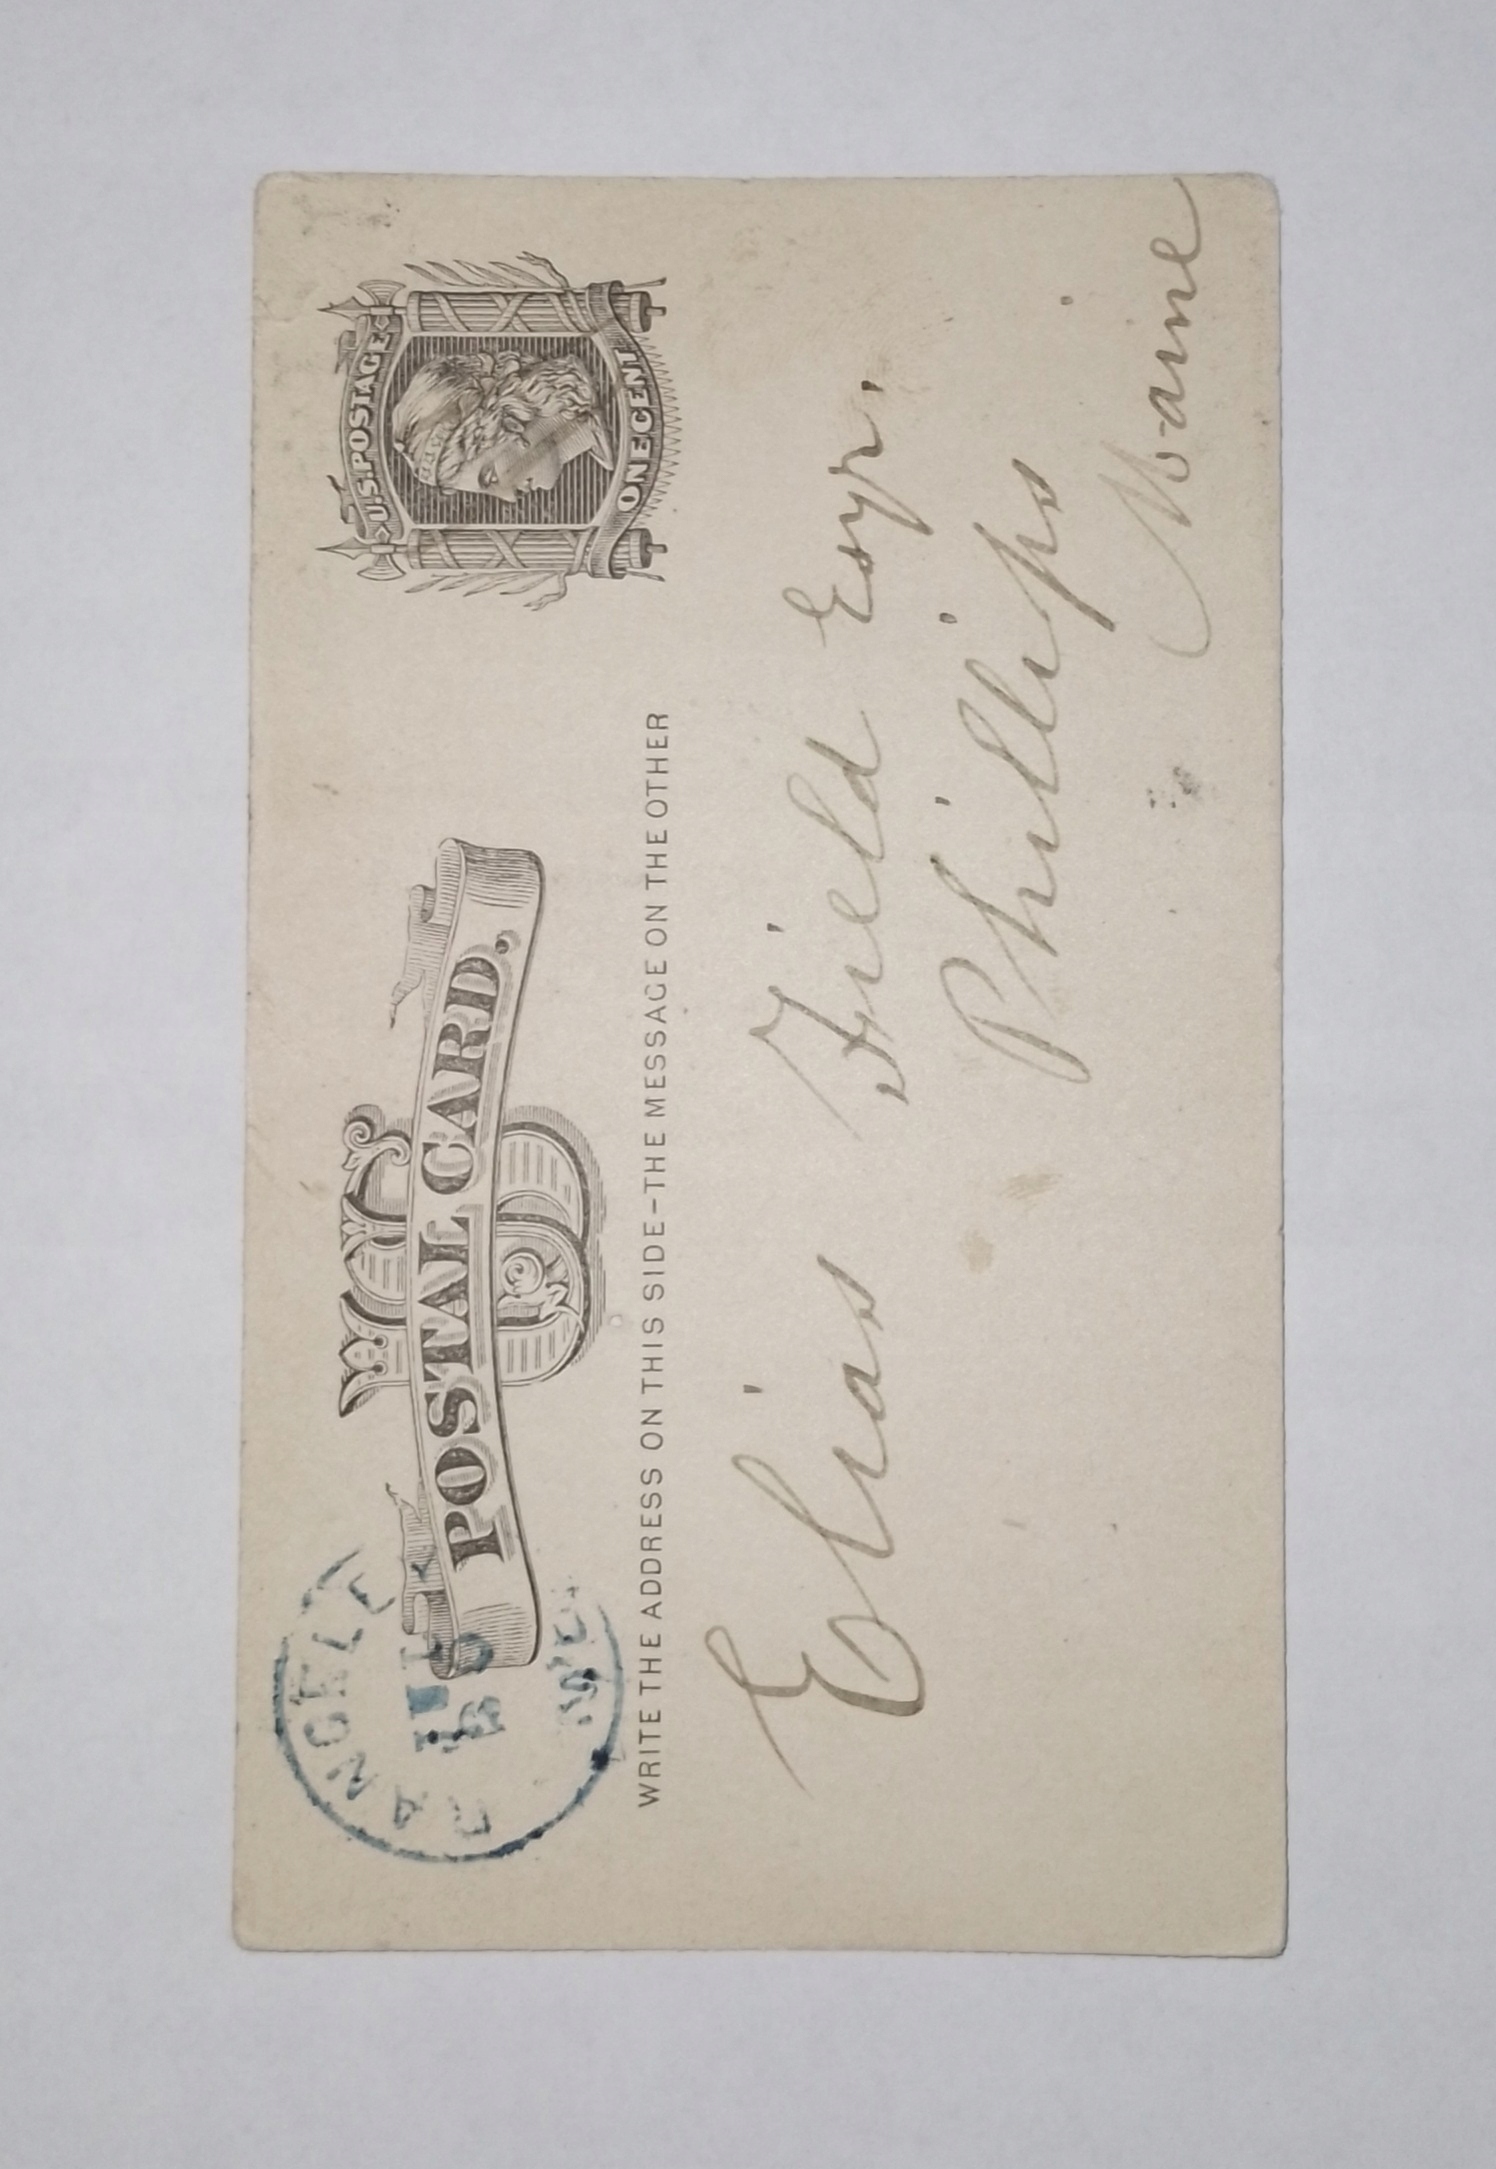 U.S. POSTAGE
ONE CENT
US
POSTAL CARD.
WRITE THE ADDRESS ON THIS SIDE-THE MESSAGE ON THE OTHER
Elias Field Esqr.
Phillips
Maine
ME.